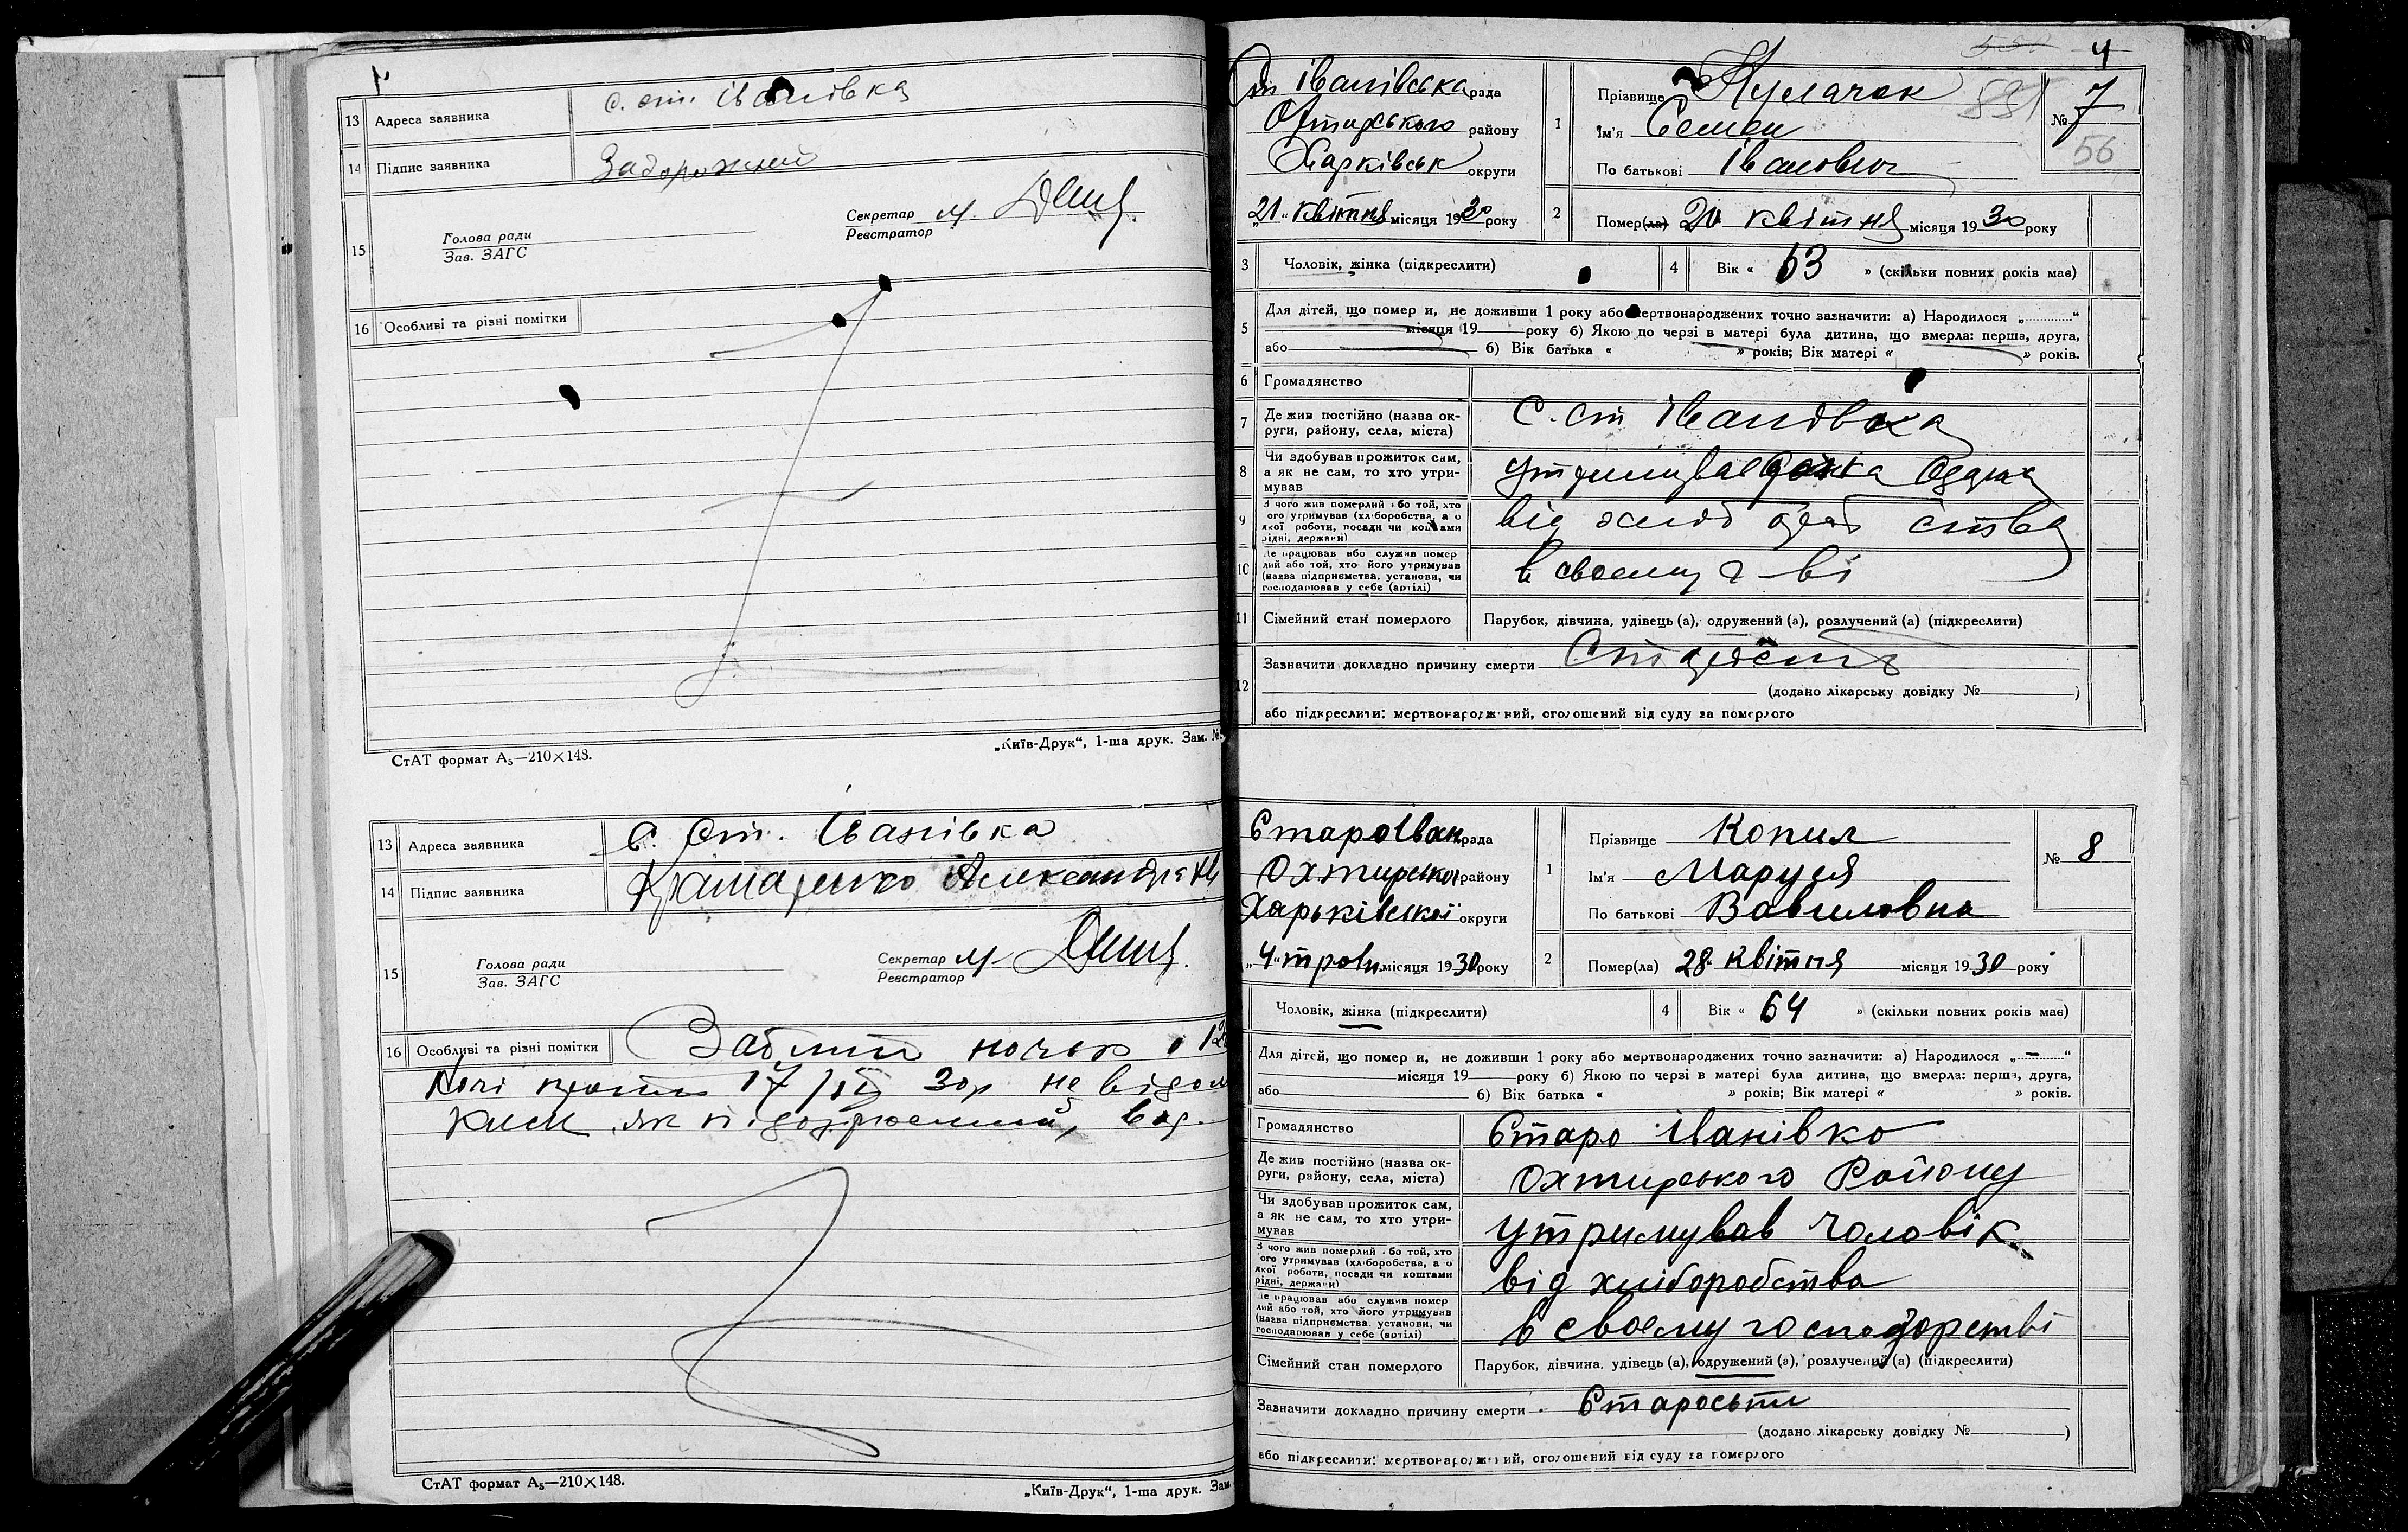 13 Адреса заявника с. ст. Іванівка
14 Підпис заявника Задорожній
15 Голова ради
Зав. ЗАГС
Секретар
Реєстратор
16 Особливі та різні помітки
СтАТ формат А₅—210×148.
„Київ-Друк“, 1-ша друк. Зам. №
13 Адреса заявника с. Ст. Іванівка
14 Підпис заявника Крамаренко Александра
15 Голова ради
Зав. ЗАГС
Секретар
Реєстратор
16 Особливі та різні помітки ночью о 12
17/ІІІ 30р не відом
як
СтАТ формат А₅—210×148.
„Київ-Друк“, 1-ша друк. Зам.
4
Ст Іванівська рада
Охтирського району
Харківськ округи
„21“ квітня місяця 1930 року
1 Прізвище Кулачок
Ім'я Семен
По батькові Іванович
№ 7
56
2 Помер(ла) 20 квітня місяця 1930 року
3 Чоловік, жінка (підкреслити)
4 Вік « 63 » (скільки повних років має)
5 Для дітей, що помер и, не доживши 1 року або мертвонароджених точно зазначити: а) Народилося „ “
місяця 19 року б) Якою по черзі в матері була дитина, що вмерла: перша, друга,
або б) Вік батька « » років; Вік матері « » років.
6 Громадянство
7 Де жив постійно (назва ок-
руги, району, села, міста) С. ст Іванівка
8 Чи здобував прожиток сам,
а як не сам, то хто утри-
мував дочка
9 З чого жив померлий або той, хто
ого утримував (хліборобства, а о
якої роботи, посади чи коштами
рідні, держави) від хлібороб ства
10 Де працював або служив помер
лий або той, хто його утримував
(назва підприємства, установи, чи
господарював у себе (артілі) в своему г-ві
11 Сімейний стан померлого Парубок, дівчина, удівець (а), одружений (а), розлучений (а) (підкреслити)
12 Зазначити докладно причину смерти Старость
(додано лікарську довідку № )
або підкреслити: мертвонароджений, оголошений від суду за померлого
СтароІван рада
Охтирського району
Харьківської округи
„4“ травн місяця 1930 року
1 Прізвище Копил
Ім'я Маруся
По батькові Вавиловна
№ 8
2 Помер(ла) 28 квітня місяця 1930 року
Чоловік, жінка (підкреслити)
4 Вік « 64 » (скільки повних років має)
Для дітей, що помер и, не доживши 1 року або мертвонароджених точно зазначити: а) Народилося „ — “
місяця 19 року б) Якою по черзі в матері була дитина, що вмерла: перша, друга,
або б) Вік батька « » років; Вік матері « » років.
Громадянство Старо Іванівко
Де жив постійно (назва ок-
руги, району, села, міста) Охтирського Району
Чи здобував прожиток сам,
а як не сам, то хто утри-
мував утримував чоловік
З чого жив померлий або той, хто
ого утримував (хліборобства, а о
якої роботи, посади чи коштами
рідні, держави) від хліборобства
Де працював або служив помер
лий або той, хто його утримував
(назва підприємства, установи, чи
господарював у себе (артілі) в своему господорстві
Сімейний стан померлого Парубок, дівчина, удівець (а), одружений (а), розлучений (а) (підкреслити)
Зазначити докладно причину смерти Старосьти
(додано лікарську довідку № )
або підкреслити: мертвонароджений, оголошений від суду за померлого